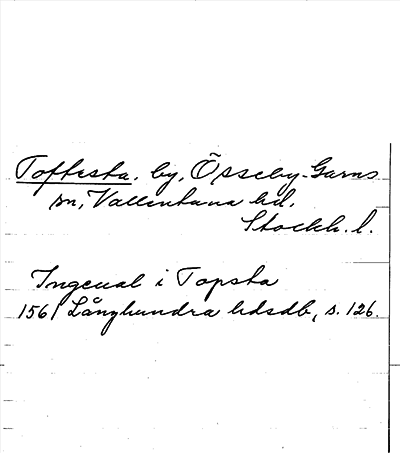 Toftesta, by, Össeby-Garns
sn, Vallentuna hd,
Stockh. l.
Ingeual i Topsta
1561 Långhundra hdsdb, s. 126.